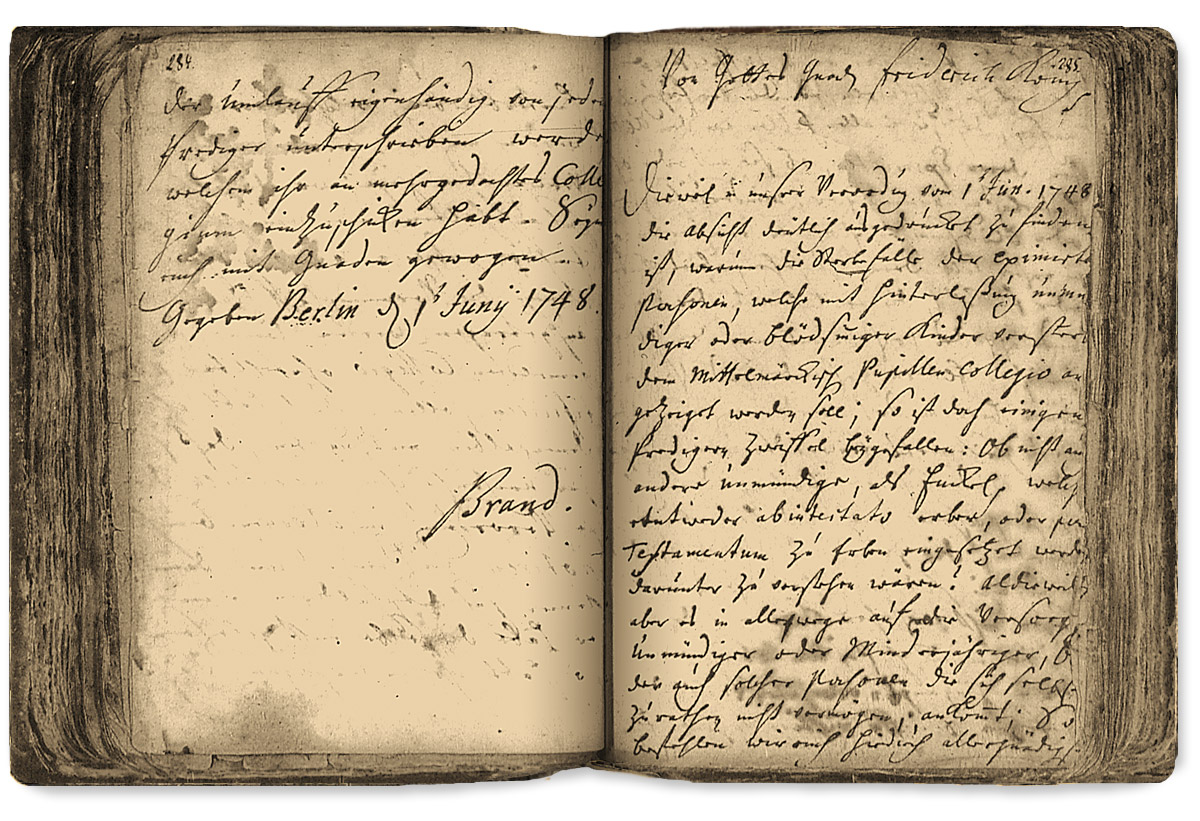 284.
der Umlauff eigenhändig von jeden
Prediger unterschrieben werde
welchen ihr an mehrgedachtes Colle
gium einzuschiken habt. Seyn
euch mit Gnaden gewogen.
Gegeben Berlin d 1t Juny 1748.
Brand.
285
Von Gottes Gnad Friderich König
Dieweil in unser Verordng vom 1t Jun. 1748
die absicht deutlich ausgedrucket zu finden
ist, warum die Sterbefälle der eximirte
Persohnen, welche mit Hinterlaßung unmü
diger oder blödsiniger Kinder versterb
dem Mittelmärckisch Pupillen Collegio an
gezeiget werden soll; so ist doch einigen
Predigern Zweiffel beygefallen: Ob nicht au
andere unmündige, als Enkel, welch
entweder ab intestato erben, oder per
Testamentum zu Erben eingesetzet werde
darunter zu verstehen wären? aldieweil
aber es in allewege auf die Versorg
Unmündiger oder Minderjähriger, o
der auch solcher Persohnen die sich selbst
zu rathen nicht vermögen, ankomt; So
befehlen wir euch hiedurch allergnädigst